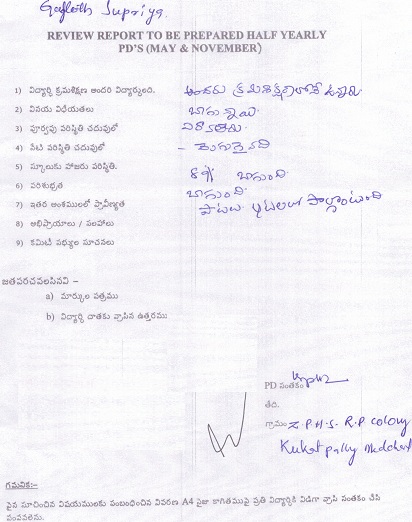 Gugloth Supriya.
REVIEW REPORT TO BE PREPARED HALF YEARLY
PD'S (MAY & NOVEMBER)
1) విద్యార్థి క్రమశిక్షణ అందరి విద్యార్థులంది. అందరు క్రమశిక్షణలోనే ఉన్నారు
2) వినయ విధేయతలు బాగున్నాయి.
3) పూర్వపు పరిస్థితి చదువులో
4) నేటి పరిస్థితి చదువులో - మెరుగైనది
5) స్కూలుకు హాజరు పరిస్థితి. 89% బాగుంది
6) పరిశుభ్రత బాగుంది.
7) ఇతర అంశములలో ప్రావీణ్యత పాటల పోటీలలో పాల్గొంటుంది
8) అభిప్రాయాలు / సలహాలు
9) కమిటీ సభ్యుల సూచనలు
జతపరచవలసినవి –
a) మార్కుల పత్రము
b) విద్యార్థి దాతకు వ్రాసిన ఉత్తరము
PD సంతకం
తేది.
గ్రామం Z.P.H.S. R.P colony
Kukatpally Medchal
గమనిక:-
పైన సూచించిన విషయములకు సంబంధించిన వివరణ A4 సైజు కాగితముపై ప్రతి విద్యార్థికి విడిగా వ్రాసి సంతకం చేసి
పంపవలెను.